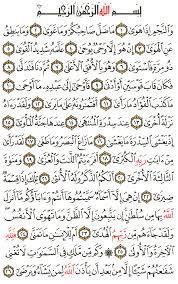 بِسْمِ ٱللَّهِ ٱلرَّحْمَٰنِ ٱلرَّحِيمِ
وَٱلنَّجْمِ إِذَا هَوَىٰ ١ مَا ضَلَّ صَاحِبُكُمْ وَمَا غَوَىٰ ٢ وَمَا يَنطِقُ
عَنِ ٱلْهَوَىٰٓ ٣ إِنْ هُوَ إِلَّا وَحْىٌ يُوحَىٰ ٤ عَلَّمَهُۥ شَدِيدُ ٱلْقُوَىٰ ٥
ذُو مِرَّةٍ فَٱسْتَوَىٰ ٦ وَهُوَ بِٱلْأُفُقِ ٱلْأَعْلَىٰ ٧ ثُمَّ دَنَا فَتَدَلَّىٰ ٨
فَكَانَ قَابَ قَوْسَيْنِ أَوْ أَدْنَىٰ ٩ فَأَوْحَىٰٓ إِلَىٰ عَبْدِهِۦ مَآ أَوْحَىٰ ١٠ مَا
كَذَبَ ٱلْفُؤَادُ مَا رَأَىٰٓ ١١ أَفَتُمَٰرُونَهُۥ عَلَىٰ مَا يَرَىٰ ١٢ وَلَقَدْ رَءَاهُ نَزْلَةً
أُخْرَىٰ ١٣ عِندَ سِدْرَةِ ٱلْمُنتَهَىٰ ١٤ عِندَهَا جَنَّةُ ٱلْمَأْوَىٰٓ ١٥ إِذْ
يَغْشَى ٱلسِّدْرَةَ مَا يَغْشَىٰ ١٦ مَا زَاغَ ٱلْبَصَرُ وَمَا طَغَىٰ ١٧ لَقَدْ رَأَىٰ
مِنْ ءَايَٰتِ رَبِّهِ ٱلْكُبْرَىٰٓ ١٨ أَفَرَءَيْتُمُ ٱللَّٰتَ وَٱلْعُزَّىٰ ١٩ وَمَنَوٰةَ ٱلثَّالِثَةَ
ٱلْأُخْرَىٰٓ ٢٠ أَلَكُمُ ٱلذَّكَرُ وَلَهُ ٱلْأُنثَىٰ ٢١ تِلْكَ إِذًا قِسْمَةٌ
ضِيزَىٰٓ ٢٢ إِنْ هِىَ إِلَّآ أَسْمَآءٌ سَمَّيْتُمُوهَآ أَنتُمْ وَءَابَآؤُكُم مَّآ أَنزَلَ
ٱللَّهُ بِهَا مِن سُلْطَٰنٍ إِن يَتَّبِعُونَ إِلَّا ٱلظَّنَّ وَمَا تَهْوَى ٱلْأَنفُسُ
وَلَقَدْ جَآءَهُم مِّن رَّبِّهِمُ ٱلْهُدَىٰٓ ٢٣ أَمْ لِلْإِنسَٰنِ مَا تَمَنَّىٰ ٢٤ فَلِلَّهِ
ٱلْءَاخِرَةُ وَٱلْأُولَىٰ ٢٥ وَكَم مِّن مَّلَكٍ فِى ٱلسَّمَٰوَٰتِ لَا تُغْنِى
شَفَٰعَتُهُمْ شَيْـًٔا إِلَّا مِنۢ بَعْدِ أَن يَأْذَنَ ٱللَّهُ لِمَن يَشَآءُ وَيَرْضَىٰٓ ٢٦